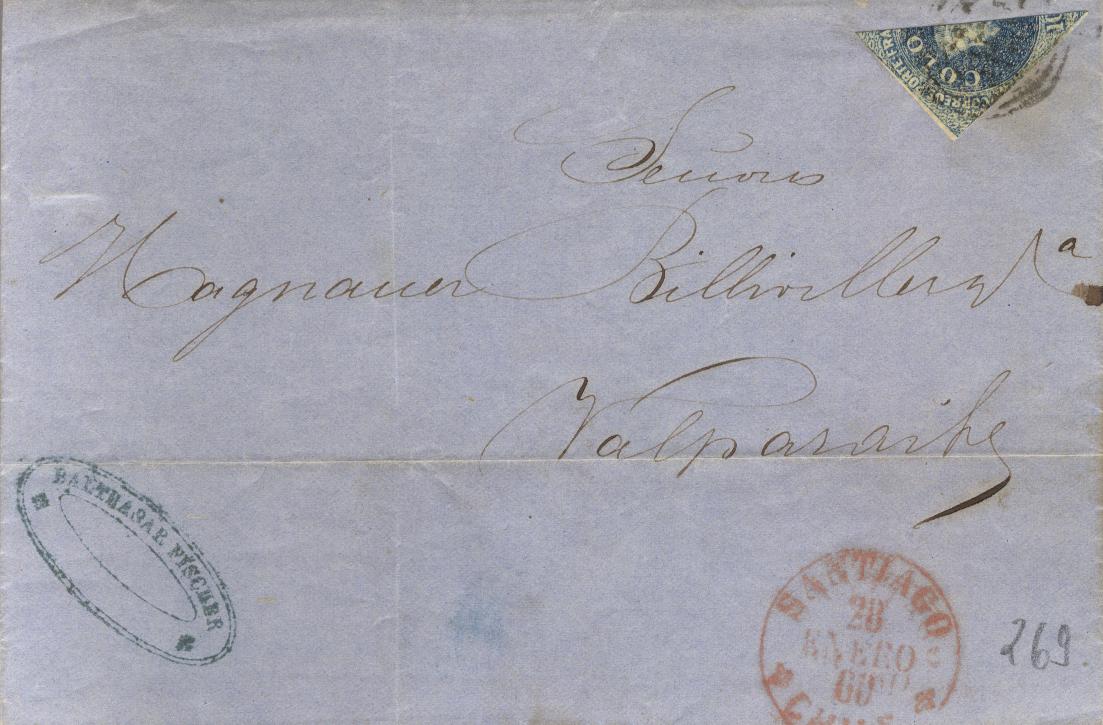 COLO
CORREOS PORTE FRA
Señores
Hagnauer Billwiller y Ca
Valparaiso
BALTHASAR FISCHER
SANTIAGO
28
ENERO
60
CHILE
269